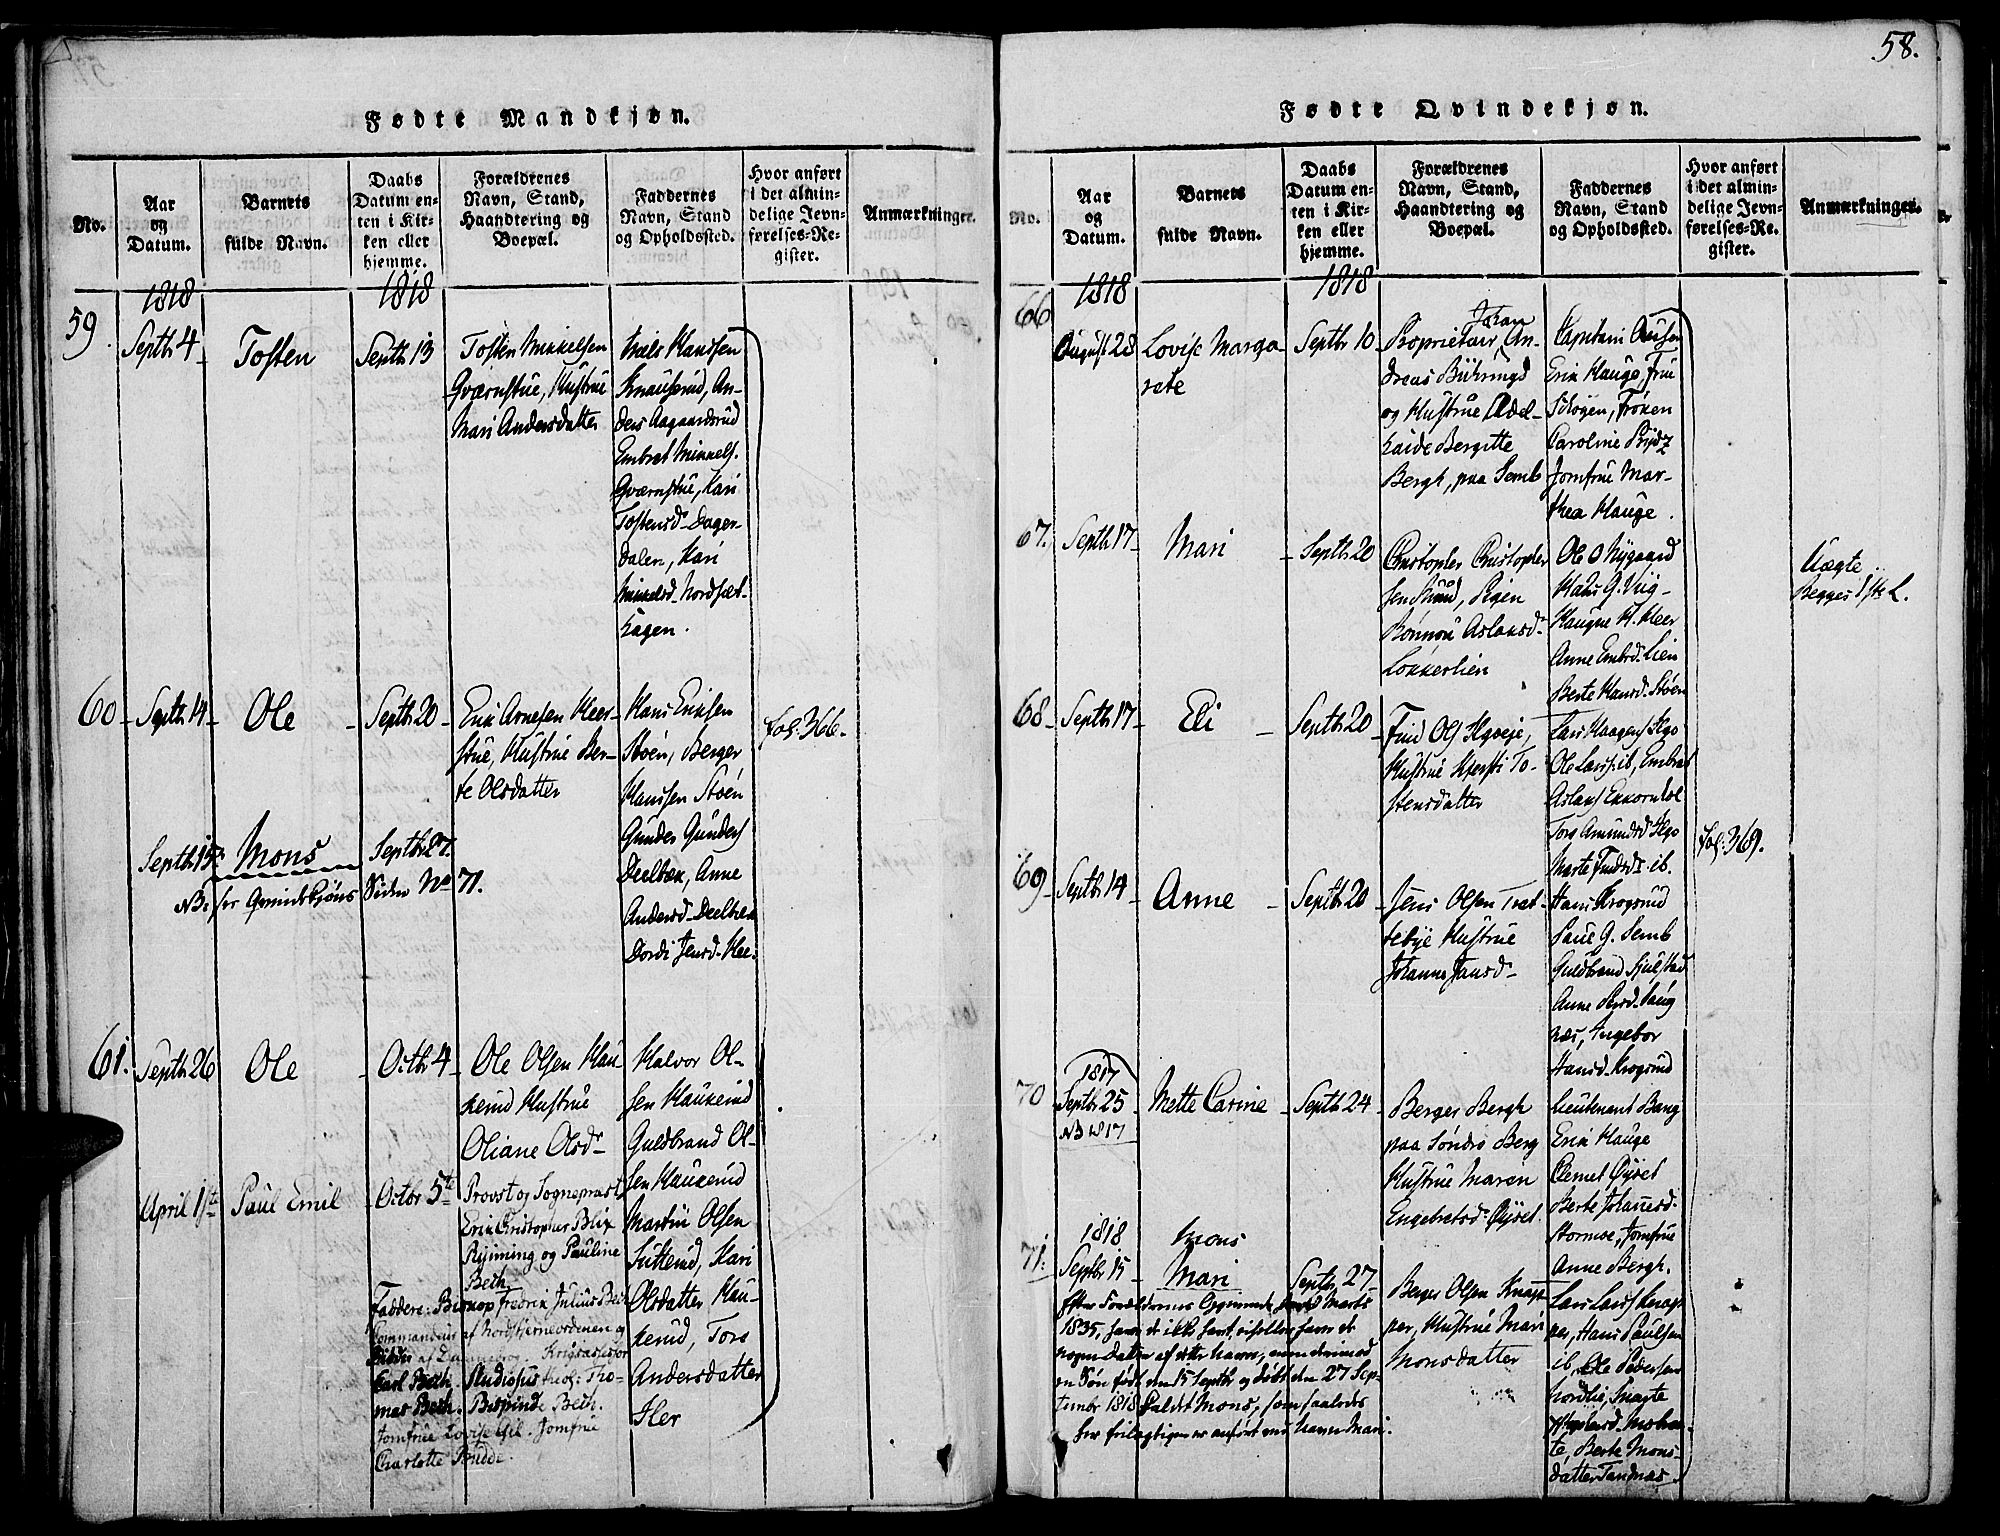 58.
Fødte Mandkjøn.
No.
Aar
og
Datum.
Barnets
fulde Navn.
Daabs
Datum en-
ten i Kir-
ken eller
hjemme.
Forældrenes
Navn, Stand,
Haandtering og
Boepæl.
Faddernes
Navn, Stand
og Opholdssted.
Hvor anført
i det almin-
delige Jevn-
førelses-Re-
gister.
Anmærkninger.
1818
1818
59
Septb 4
Tosten
Septb 13
Tosten Mikkelsen
Qværnstue, Hustrue
Mari Andersdatter
Niels Handsen
Knauserud, An-
ders Aagaardsrud
Embret Mikkels.
Qværnstue, Kari
Tostensd. Dagen-
dalen, Kari
Mikkelsd. Nordsæt-
hagen.
60
Septb 14
Ole
Septb 20
Erik Arnesen Heer-
stue, Hustrue Ber-
te Olsdatter
Hans Eriksen
Støen, Berger
Hanssen Støen
Gunder Gunders
Deelbæk, Anne
Andersd. Deelbek
Dordi Jensd. Hee:
fol: 366.
Septb 15
Mons
Septb. 27.
NB: see Qvindekjøns Siden No 71.
61.
Septb 26
Ole
Octb 4
Ole Olsen Hau-
kerud Hustrue
Oliane Olsdr
Halvor Ol-
sen Haukerud
Guldbrand Ol-
sen Haukerud
Martin Olsen
Kari
Olsdatter Hau-
kerud, Toro
Andersdatter
Her
April 1ste
Paul Emil
Octbr 5te
Provst og Sognepræst
Erik Christopher Blix
Ryjming og Pauline
Bech.
Faddere: Biskop Fredrik Julius Bech
Commandeur af Nordstjerneordenen og
Ridder af Dannebrog, Krigsassessor
Carl Bech. Studiosus theol: Tho-
mas Bech. Bispinde Bech.
Jomfrue Lovise Gil. Jomfrue
Charlotte Budde.
Fødte Qvindekjøn.
No.
Aar
og
Datum.
Barnets
fulde Navn.
Daabs
Datum en-
ten i Kir-
ken eller
hjemme.
Forældrenes
Navn, Stand,
Haandtering og
Boepæl.
Faddernes
Navn, Stand
og Opholdssted.
Hvor anført
i det almin-
delige Jevn-
førelses-Re-
gister.
Anmærkninger.
1818
1818
66
August 28
Lovise Marga-
rete
Septbr 10
Johan
Proprietair An-
dreas Bühring
og Hustrue Adel-
haide Bergitte
Bergh, paa Semb
Capitain
Erik Hauge, Frue
Frøken
Caroline
Jomfrue Mar-
thea Hauge.
67.
Septb 17
Mari
Septb 20
Christopher Christopher
sen Pigen
Rønnou Aslaksd.
Løkkerlien
Ole O Nygaard
Hans G.
Haugne H. Heer
Anne Embrd. Lien
Berte Hansd. Støen
Uægte
Begges 1ste L.
68
Septb 17
Eli
Septb 20
Find Ols
Hustrue Kjersti To-
stensdatter
Lars Haagens
Ole Larss. ib, Embret
Aslaks Ekkornhol
Torg Amundsd
Marte Findsdr. ib.
fol: 369.
69
Septb 14
Anne
Septb 20
Jens Olsen Trat-
tebye Hustrue
Johanne Jansd
Hans Krogsrud
Paul G. Semb
Guldbrand Fjulstad
Anne
Ingebor
Hansd. Krogsrud
70
1817
Septbr 25
NB 1817
Mette Carine
Septb 24
Berger Bergh
paa Søndre Berg
Hustrue Maren
Engebretsd. Øjset.
Lieutenant Bang
Erik Hauge
Clemet Øjset
Berte Johannesd.
Stormoe, Jomfrue
Anne Bergh.
71.
1818
Septbr 15
Mons
Mari
Septb. 27
Berger Olsen Knap-
per, Hustrue Mari
Monsdatter
Lars Larss Knap-
per, Hans Paulsen
ib, Ole Pedersen
Nordlie, Magte
te, Berte Mons-
datter
Efter Forældrenes Opgivende Marts
1835, have de ikke havt, eiheller have de
nogen datter af dette Navn, men derimod
en Søn født den 15 Septbr og døbt den 27 Sep-
tember 1818 kaldet Mons, som saaledes
her feilagtigen er anført med Navn Mari.